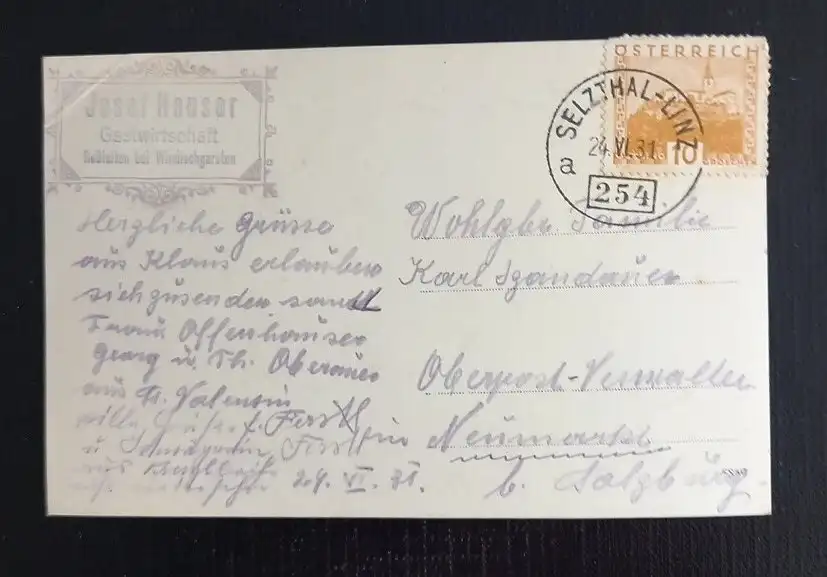 Josef Hauser
Gastwirtschaft
bei Windischgarsten
ÖSTERREICH
10 GROSCHEN
SELZTHAL-LINZ
24.VI.31
a
254
Herzliche Grüsse
aus Klaus erlauben
sich zusenden samt
Frau Offenhauser
Georg u. Th. Oberauer
aus St. Valentin
u.
24. VI. 31.
Wohlgb. Familie
Karl Szandauer
Oberpost-Verwalter
in Neumarkt
b. Salzburg.